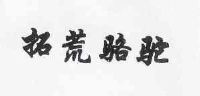 拓荒骆驼